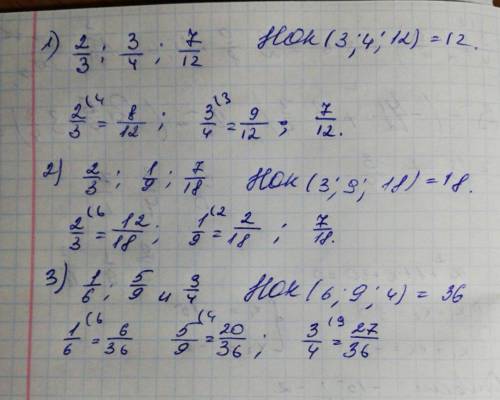 1) 2/3 ; 3/4 ; 7/12 НОК (3; 4; 12) = 12.
2/3 (4 = 8/12 ; 3/4 (3 = 9/12 ; 7/12.
2) 2/3 ; 1/9 ; 7/18 НОК (3; 9; 18) = 18.
2/3 (6 = 12/18 ; 1/9 (2 = 2/18 ; 7/18.
3) 1/6 ; 5/9 и 3/4 НОК (6; 9; 4) = 36
1/6 (6 = 6/36 5/9 (4 = 20/36 ; 3/4 (9 = 27/36